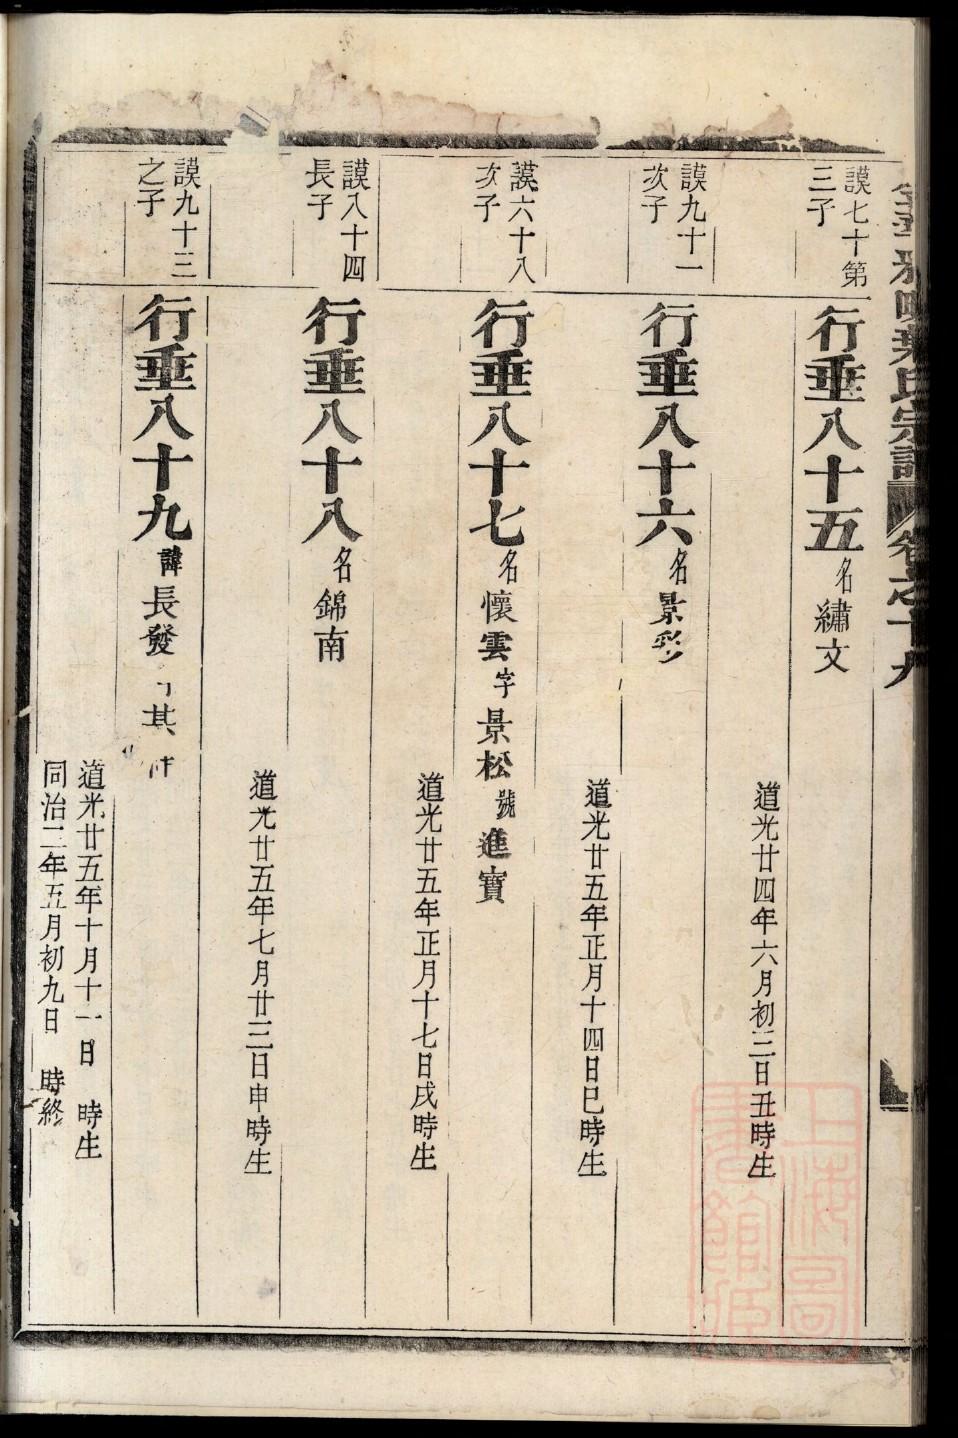 葉氏宗譜
卷之十九
謨七十第
三子
行垂八十五 名 繡文
道光廿四年六月初三日丑時生
謨九十一
次子
行垂八十六 名 景彩
道光廿五年正月十四日巳時生
謨六十八
次子
行垂八十七 名 懷雲 字 景松 號 進寶
道光廿五年正月十七日戌時生
謨八十四
長子
行垂八十八 名 錦南
道光廿五年七月廿三日申時生
謨九十三
之子
行垂八十九 諱 長發 其
道光廿五年十月十一日 時生
同治二年五月初九日 時終
上海圖
書館藏